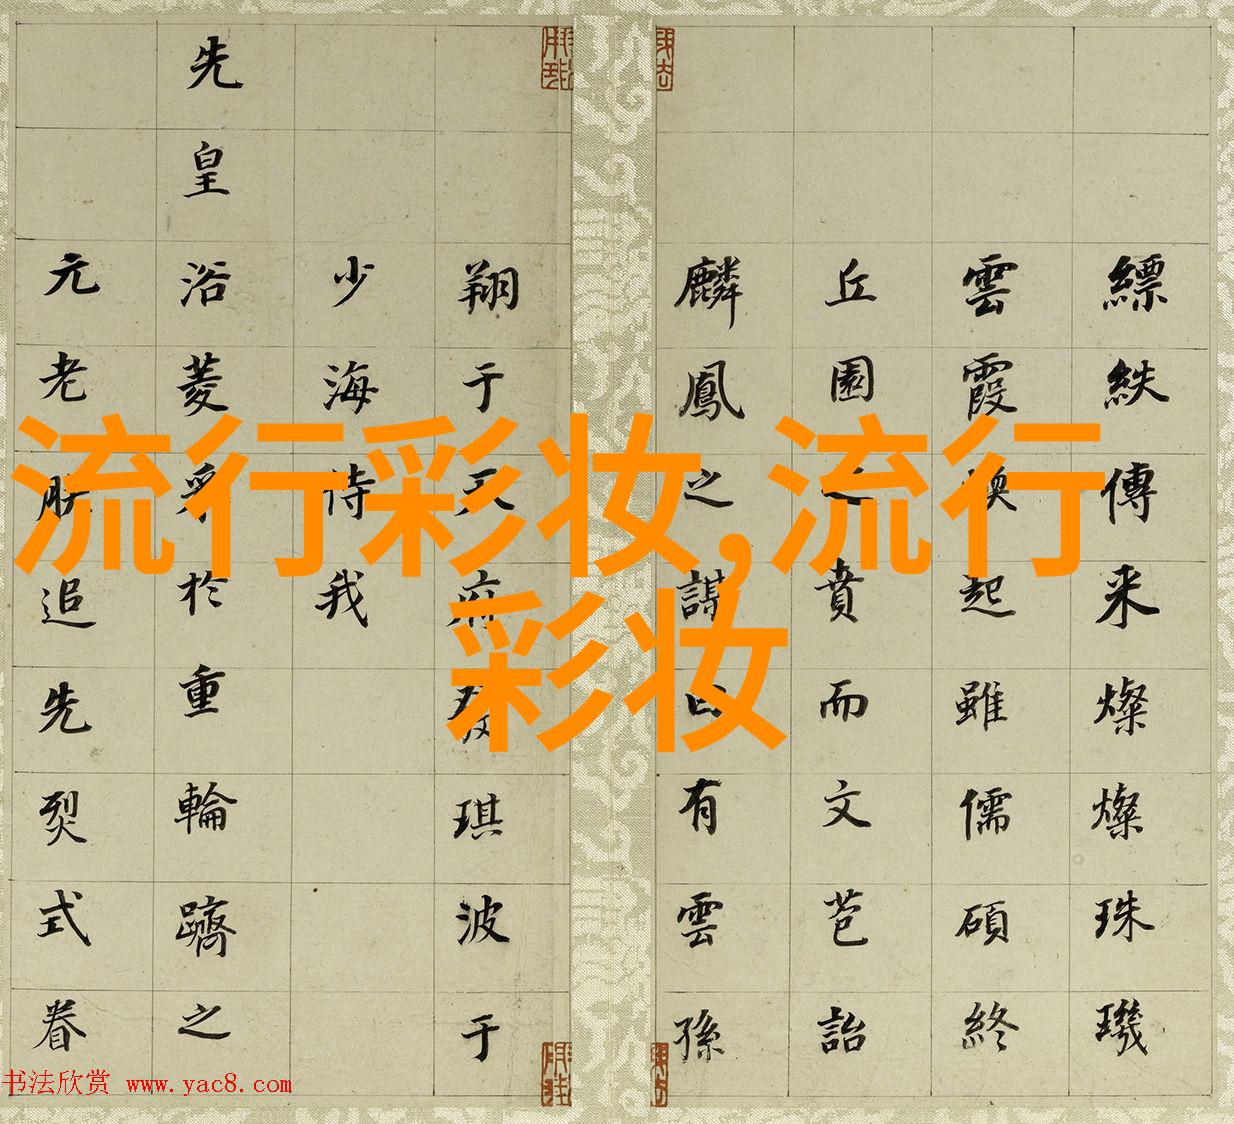 流行彩妆,流行
彩妆
縹紩傳来燦燦珠璣
雲霞煥起雖儒碩終
丘園之賁而文苞詒
麟鳳之謀有雲孫
翔于天府發琪波于
少海侍我
先皇浴菱采於重輪躋之
元老朕追先烈式眷
书法欣赏 www.yac8.com